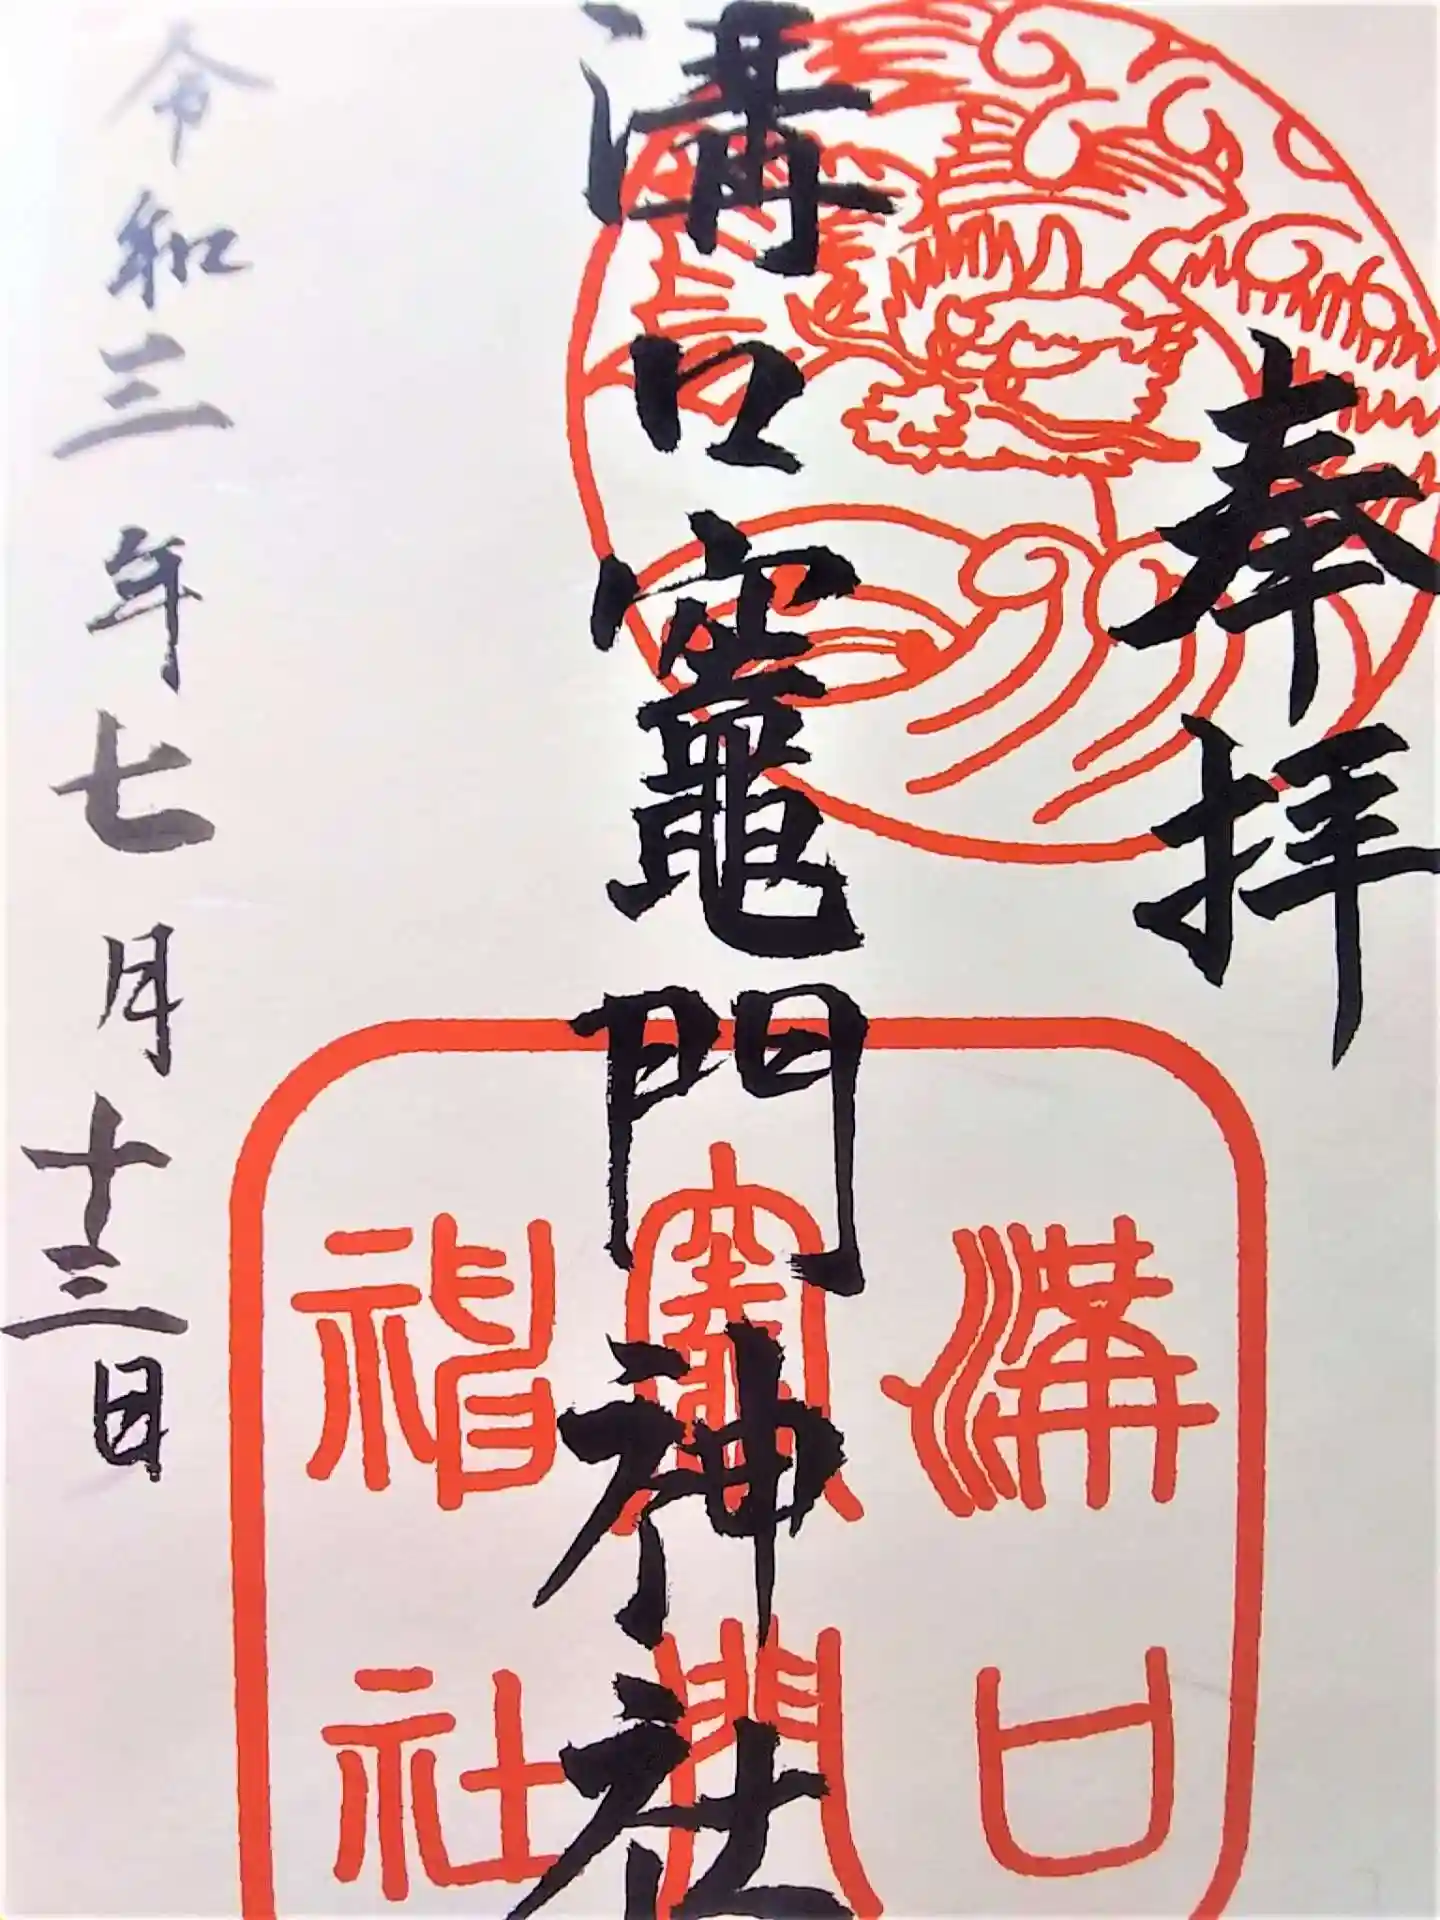 奉拝
溝口竈門神社
令和三年七月十三日
溝口
竈門
神社